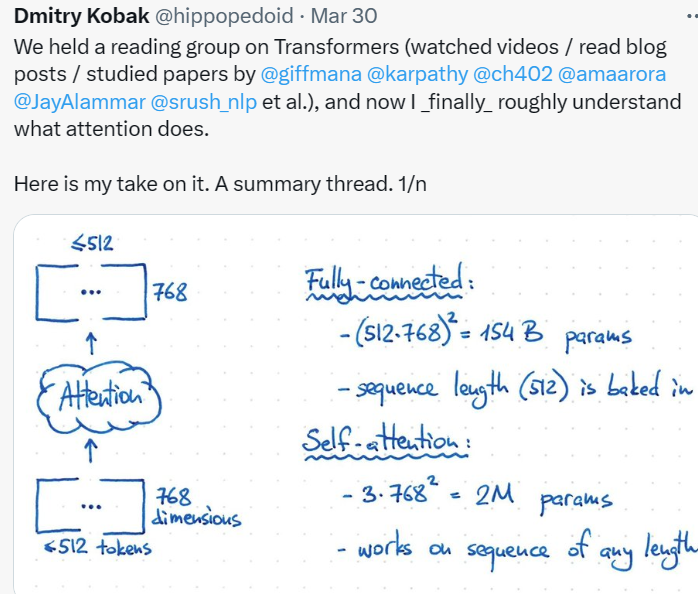 Dmitry Kobak @hippopedoid · Mar 30
We held a reading group on Transformers (watched videos / read blog
posts / studied papers by @giffmana @karpathy @ch402 @amaarora
@JayAlammar @srush_nlp et al.), and now I _finally_ roughly understand
what attention does.
Here is my take on it. A summary thread. 1/n
≤512
... 768
Attention
... 768
dimensions
≤512 tokens
Fully-connected:
- (512·768)² = 154 B params
- sequence length (512) is baked in
Self-attention:
- 3·768² = 2M params
- works on sequence of any length